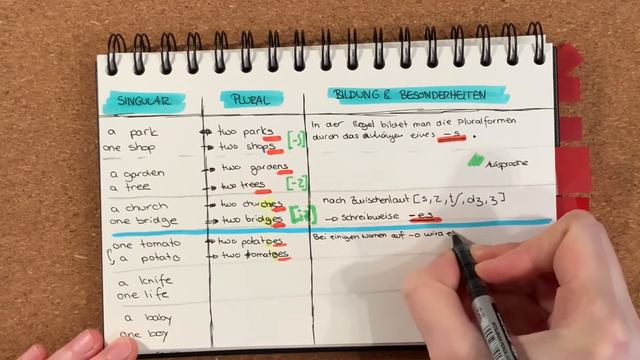 SINGULAR PLURAL BILDUNG & BESONDERHEITEN
a park → two parks
one shop → two shops [-s]
In der Regel bildet man die Pluralformen
durch das Anhängen eines -s.
a garden → two gardens
a tree → two trees [-z]
Aussprache
a church → two churches
one bridge → two bridges
nach Zwischenlaut [s, z, tʃ, dʒ, ʒ]
→ Schreibweise -es
one tomato → two potatoes
a potato → two tomatoes
Bei einigen Nomen auf -o wird es
a knife
one life
a baby
one boy